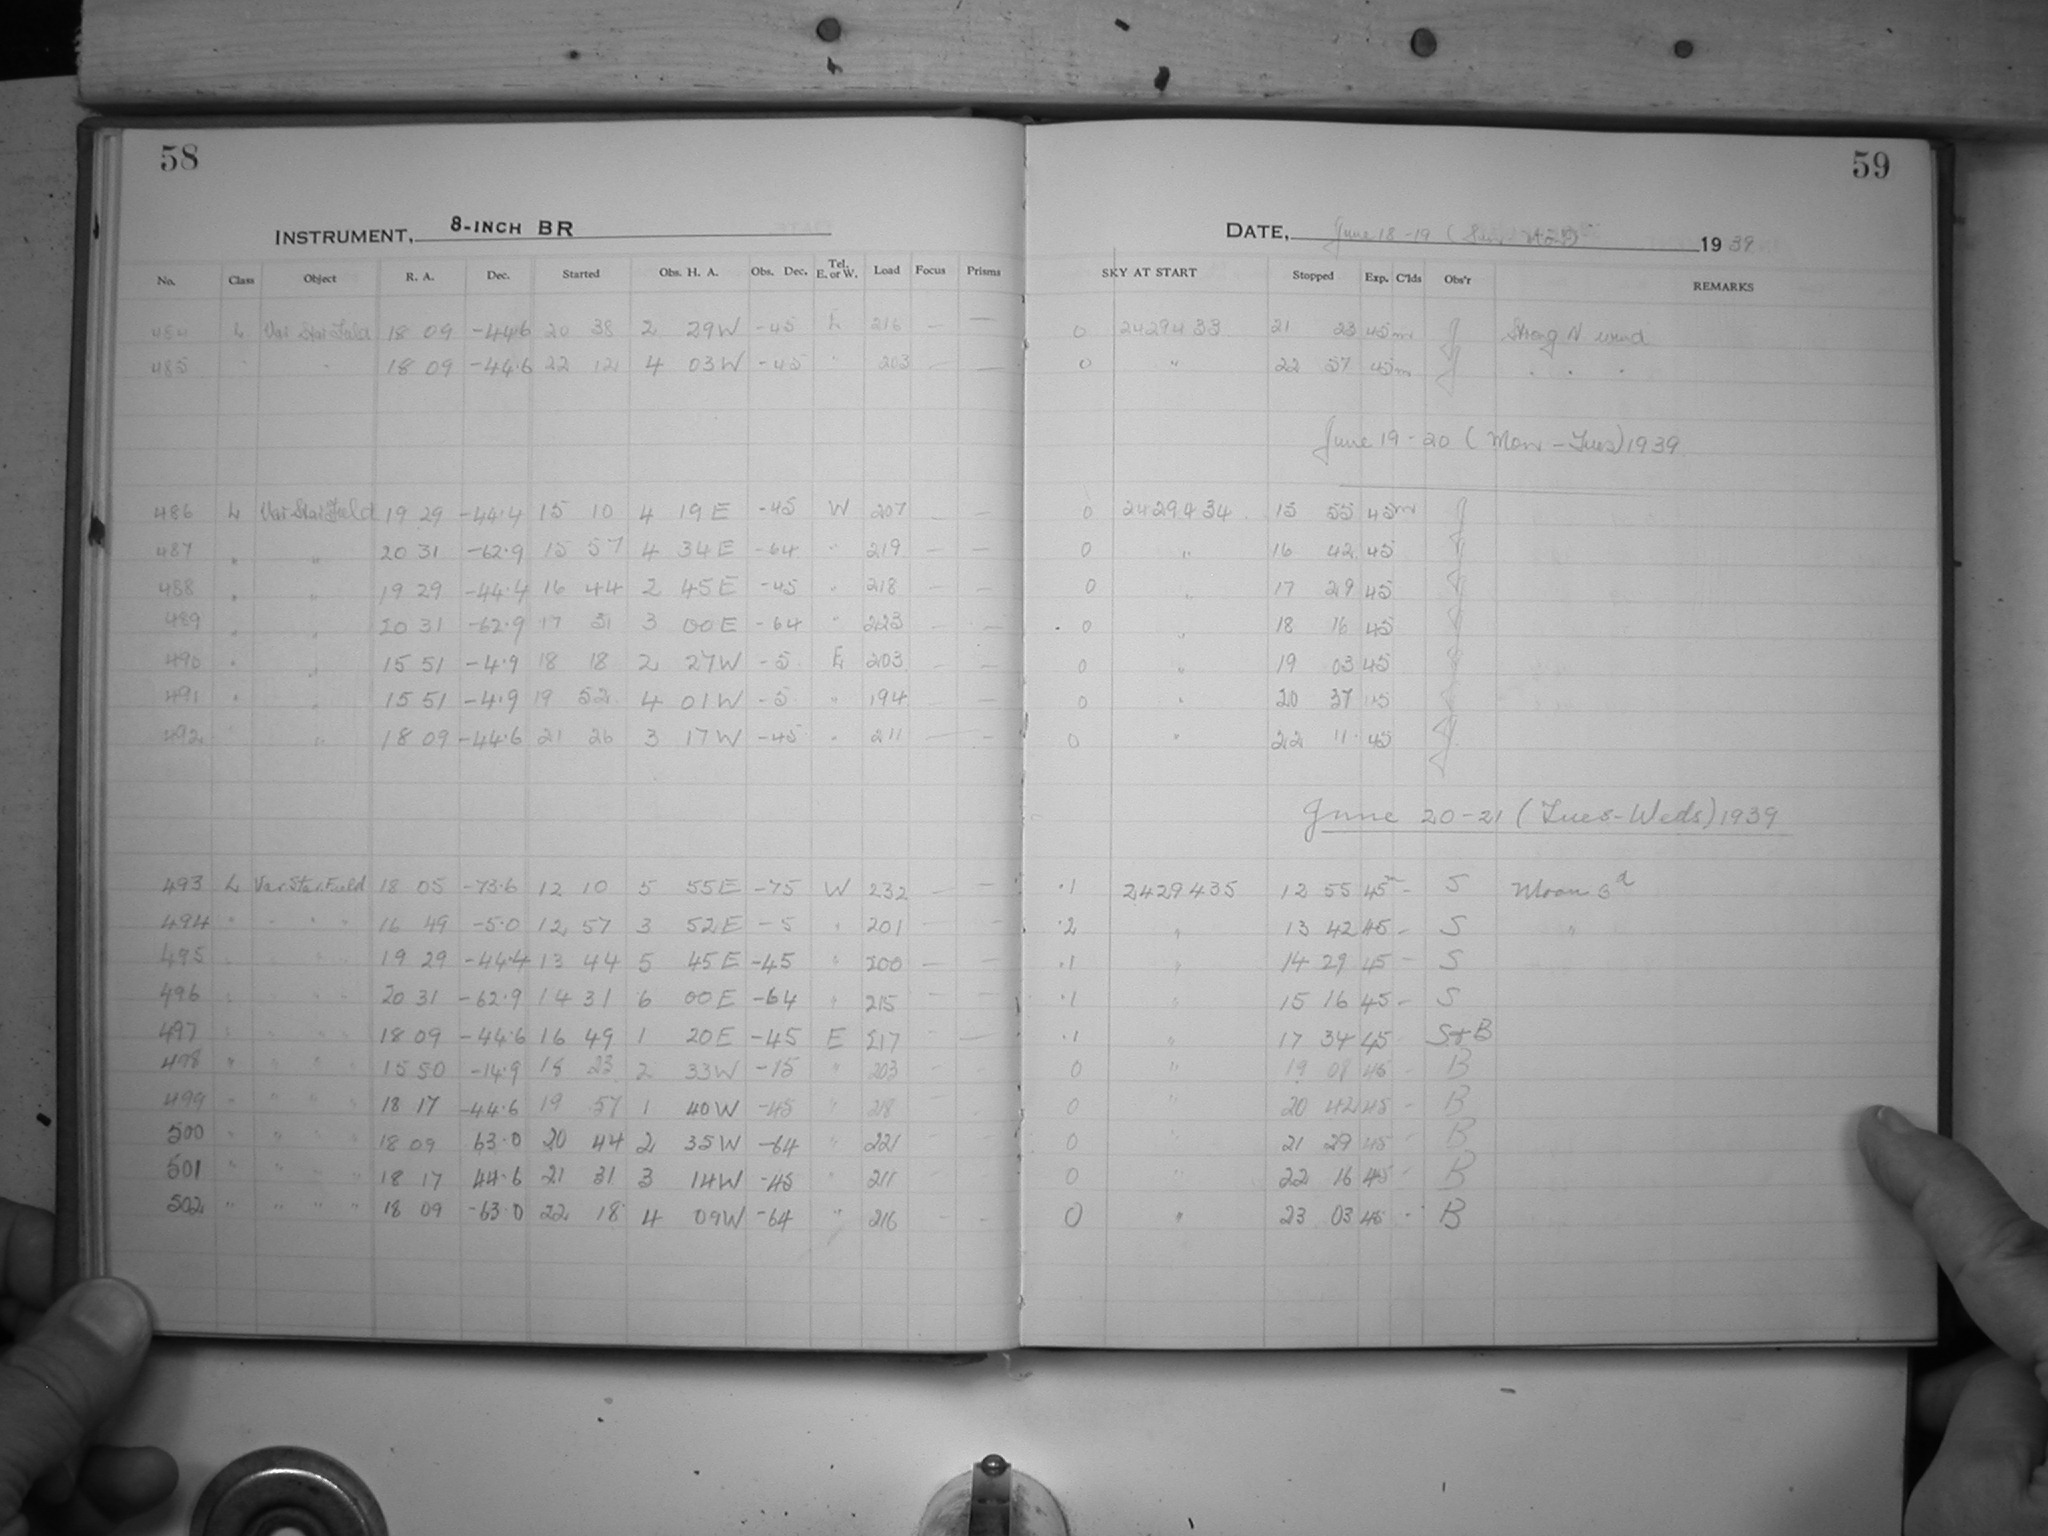 58
INSTRUMENT, 8-INCH BR
No. Class Object R. A. Dec. Started Obs. H. A. Obs. Dec. Tel. E. or W. Load Focus Prisms
484 L Var Star Field 18 09 -44.6 20 38 2 29W -45 E 216 — —
485 " " 18 09 -44.6 22 12 4 03W -45 " 203 — —
486 L Var Star Field 19 29 -44.4 15 10 4 19E -45 W 207 — —
487 " " 20 31 -62.9 15 57 4 34E -64 " 219 — —
488 " " 19 29 -44.4 16 44 2 45E -45 " 218 — —
489 " " 20 31 -62.9 17 31 3 00E -64 " 223 — —
490 " " 15 51 -4.9 18 18 2 27W -5 E 203 — —
491 " " 15 51 -4.9 19 52 4 01W -5 " 194 — —
492 " 18 09 -44.6 21 26 3 17W -45 " 211 — —
493 L Var Star Field 18 05 -73.6 12 10 5 55E -75 W 232 — —
494 " " " " 16 49 -5.0 12 57 3 52E -5 " 201 — —
495 " " " " 19 29 -44.4 13 44 5 45E -45 " 200 — —
496 " " " " 20 31 -62.9 14 31 6 00E -64 " 215 — —
497 " " " " 18 09 -44.6 16 49 1 20E -45 E 217 —
498 " " " " 15 50 -14.9 18 23 2 33W -15 " 203 — —
499 " " " " 18 17 -44.6 19 57 1 40W -45 " 218 — —
500 " " " " 18 09 63.0 20 44 2 35W -64 " 221 — —
501 " " " " 18 17 44.6 21 31 3 14W -45 " 211 — —
502 " " " " 18 09 -63.0 22 18 4 09W -64 " 216 — —
59
DATE, June 18-19 (Sun-Mon) 1939
SKY AT START Stopped Exp. C'lds Obs'r REMARKS
0 2429433 21 23 45m J Strong N wind
0 " 22 57 45m J " " "
June 19-20 (Mon-Tues) 1939
0 2429434 15 55 45m J
0 " 16 42 45 J
0 " 17 29 45 J
0 " 18 16 45 J
0 " 19 03 45 J
0 " 20 37 45 J
0 " 22 11 45 J
June 20-21 (Tues-Weds) 1939
.1 2429435 12 55 45m - S Moon 3d
.2 " 13 42 45 - S "
.1 " 14 29 45 - S
.1 " 15 16 45 - S
.1 " 17 34 45 S+B
0 " 19 08 45 B
0 " 20 42 45 - B
0 " 21 29 45 - B
0 " 22 16 45 - B
0 " 23 03 45 - B